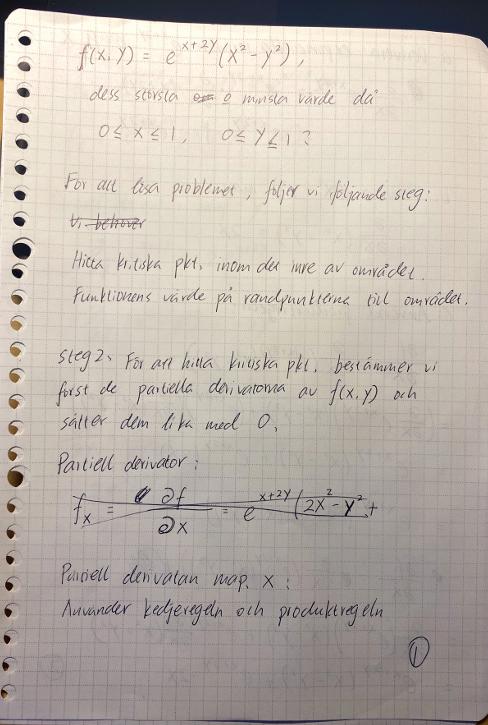 f(x,y) = e^{x+2y}(x²-y²),
dess största o minsta värde då
0 ≤ x ≤ 1, 0 ≤ y ≤ 1 ?
För att lösa problemet, följer vi följande steg:
Vi behöver
Hitta kritiska pkt, inom det inre av området.
Funktionens värde på randpunkterna till området.
steg 2. För att hitta kritiska pkt. bestämmer vi
först de partiella derivatorna av f(x,y) och
sätter dem lika med 0,
Partiell derivator:
f_x = ∂f/∂x = e^{x+2y}(2x²-y²+
Partiell derivatan map. x:
Använder kedjeregeln och produktregeln
1